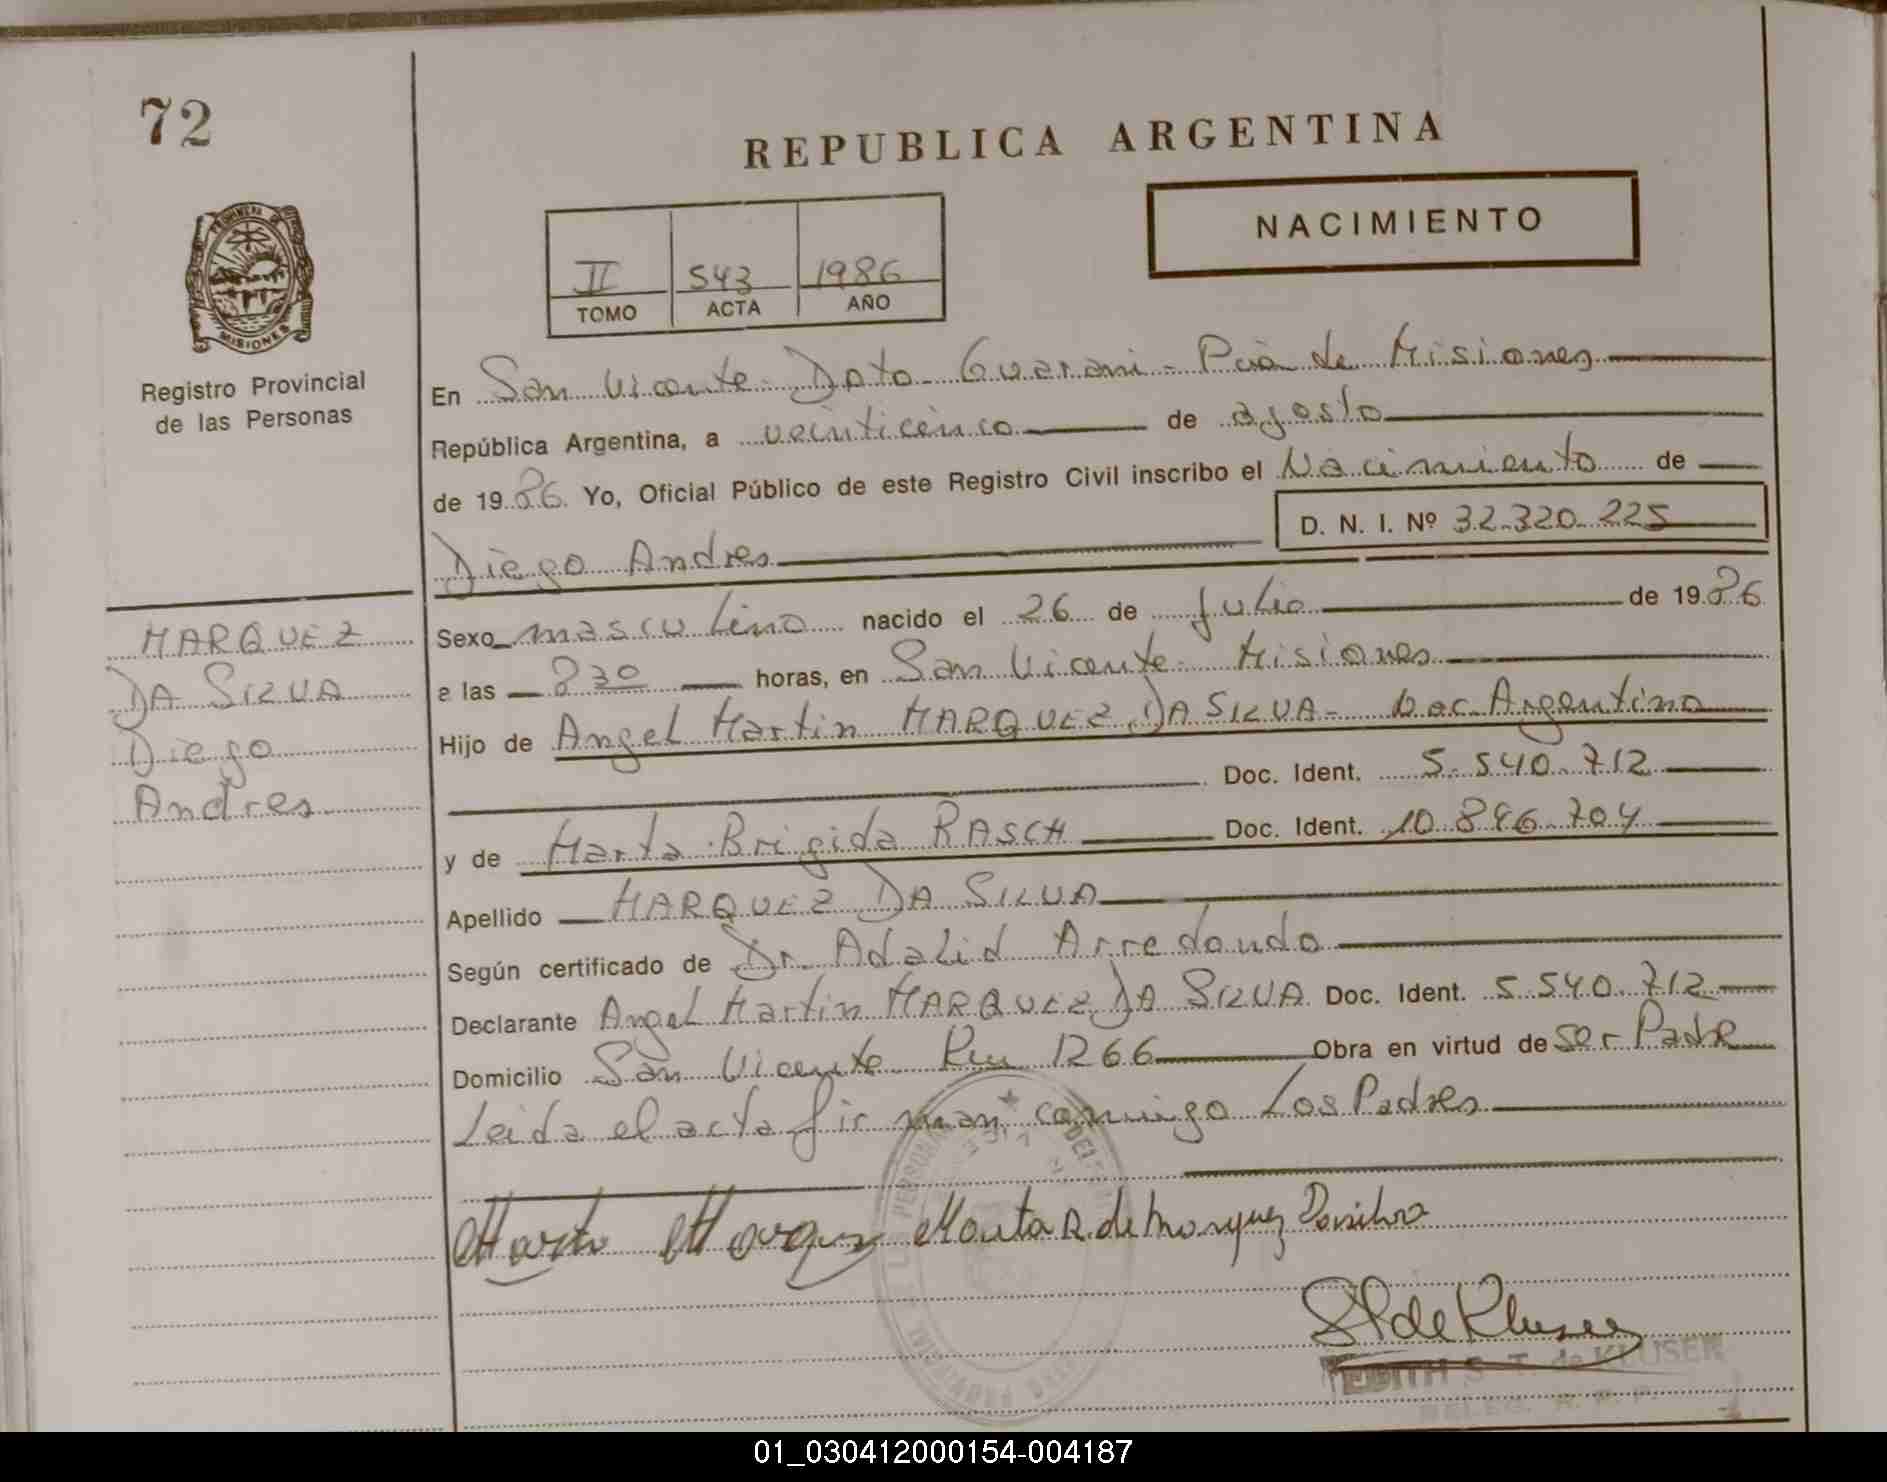 72
REPUBLICA ARGENTINA
NACIMIENTO
II 543 1986
TOMO ACTA AÑO
PROVINCIA DE
MISIONES
Registro Provincial
de las Personas
En San Vicente - Dpto Guarani - Pcia de Misiones
República Argentina, a veinticinco de agosto
de 1986 Yo, Oficial Público de este Registro Civil inscribo el Nacimiento de
D. N. I. Nº 32.320.225
Diego Andres
MARQUEZ
DA SILVA
Diego
Andres
Sexo masculino nacido el 26 de Julio de 1986
a las 8 30 horas, en San Vicente - Misiones
Hijo de Angel Martin MARQUEZ DA SILVA - Nac. Argentino
Doc. Ident. 5.540.712
y de Marta Brigida RASCH Doc. Ident. 10.896.704
Apellido MARQUEZ DA SILVA
Según certificado de Dr. Adalid Arredondo
Declarante Angel Martin MARQUEZ DA SILVA Doc. Ident. 5.540.712
Domicilio San Vicente Km 1266 Obra en virtud de ser Padre
Leida el acta firman conmigo Los Padres
Marta R. de Marquez Dasilva
EDITH S. T. de KLUSER
DELEG. R. P. P.
01_030412000154-004187